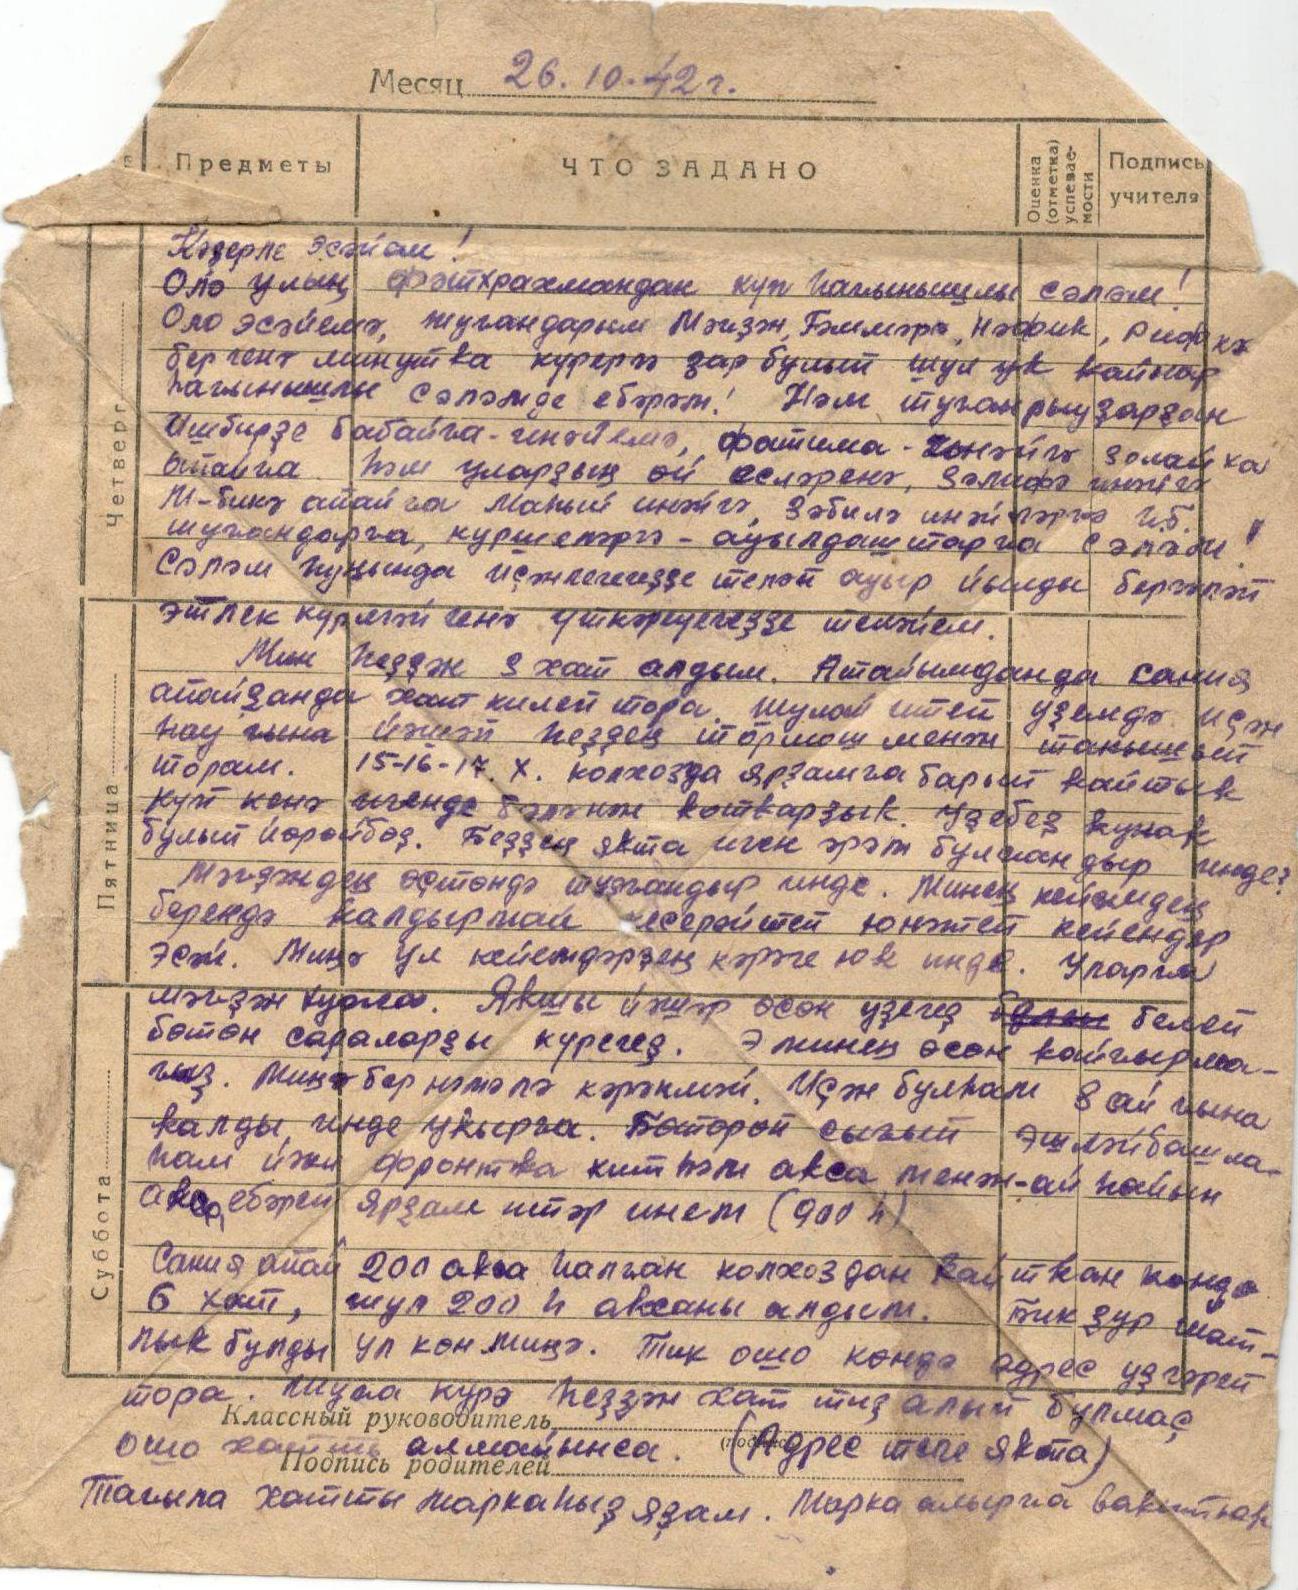 Месяц 26.10.42 г.
Предметы ЧТО ЗАДАНО Оценка (отметка) успевае-мости Подпись учителя
Четверг
Кәҙерле әсәйем!
Оло улың Фәтхрахмандан күп һағынышлы сәләм!
Оло әсәйемә, туғандарым Мәгҙән, Нәфик, Рифкә
бергенә минутка күрергә зар булып шул ук кайнар
һағынышлы сәләмде ебәрәм! Һәм туған
Ишбирҙе бабайға - инәйемә, Фатима - инәйгә Золайха
апайға һәм уларҙың өй эслэренә, Зәлифә инәйгә
М-бикә апайға инәйгә, Зәбилә инәйгәргә И.Б.
туғандарға, күршеләргә - ауылдаштарға сәләм!
Сәләм һуңында исәнлегегеҙҙе теләп ауыр йылды бергәләп
этлек күрмәй генә үткәреүегеҙҙе теләйем.
Пятница
Мин һеҙҙән 3 хат алдым. Атайымданда Сания
апайҙанда хат килеп тора. Шулай итеп үҙемдә иҫән
һау ғына йәшәп һеҙҙең тормош менән танышып
торам. 15-16-17. X. колхозда ярҙамға барып кайтык
күп кенә игенде бәләнән коткарҙык. Үҙебеҙ кунак
булып йөрөйбөҙ. Беҙҙең якта иген әрәм булғандыр инде?
Мәгҙәндең өҫтөндә туҙғандыр инде. Минең кейемдең
берендә калдырмай кесерәйтеп юнәтеп кейендер
әсәй. Миңә ул кейемдәрҙең кәрәге юк инде. Уларғы
Мәгҙән . Якшы йәшәр өсөн үҙегеҙ белеп
бөтөн сараларҙы күрегеҙ. Ә минең өсөн кайғырма-
ғыҙ. Миңә бер нәмәлә кәрәкмәй. Иҫән булһам 8 ай ғына
Суббота
калды инде укырға. Бөтөрөп сығып эшләй башла-
һам йәки фронтка китһәм акса менән - ай һайын
акса ебәреп ярҙам итәр инем (900 һ)
Сания апай 200 акса һалған колхоздан кайткан көндә
6 хат, шул 200 һ аксаны алдым. Бик ҙур шат-
лык булды ул көн миңә. Тик ошо көндә адрес үҙгәреп
тора. Шуға күрә һеҙҙән хат тиҙ алып булмаҫ
Классный руководитель
(подпись)
ошо хатты алмайынса. (Адрес теге якта)
Подпись родителей
Тағыла хатты маркаһыҙ яҙам. Марка алырға вакыт юк